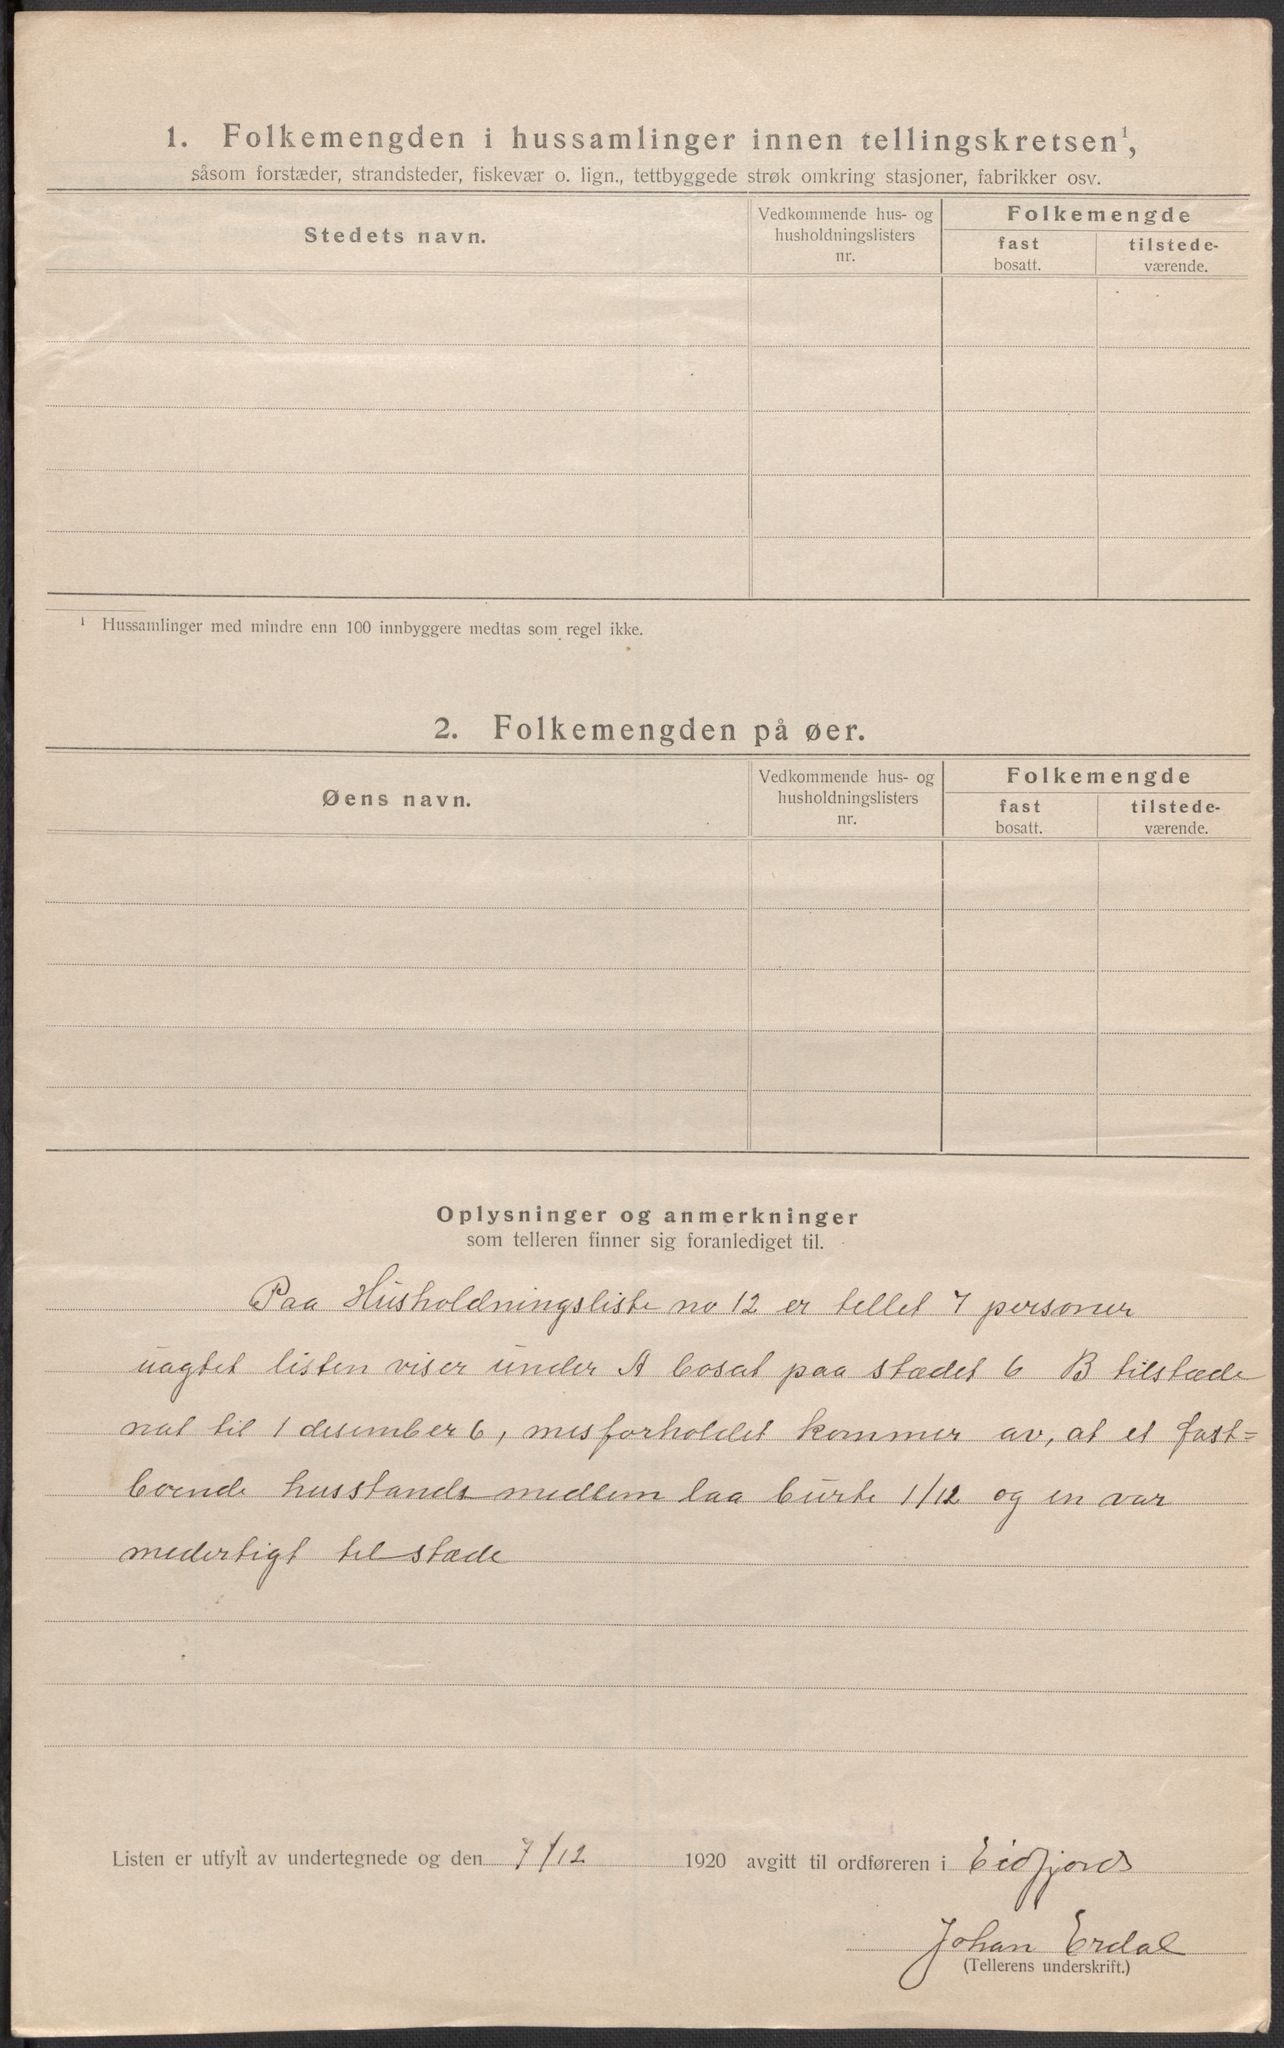 1. Folkemengden i hussamlinger innen tellingskretsen¹,
såsom forstæder, strandsteder, fiskevær o. lign., tettbyggede strøk omkring stasjoner, fabrikker osv.
Stedets navn.
Vedkommende hus- og
husholdningslisters
nr.
Folkemengde
fast
bosatt.
tilstede-
værende.
¹ Hussamlinger med mindre enn 100 innbyggere medtas som regel ikke.
2. Folkemengden på øer.
Øens navn.
Vedkommende hus- og
husholdningslisters
nr.
Folkemengde
fast
bosatt.
tilstede-
værende.
Oplysninger og anmerkninger
som telleren finner sig foranlediget til.
Paa Husholdningsliste no 12 er tellet 7 personer
uagtet listen viser under A bosat paa stædet 6 B tilstæde
nat til 1 desember 6, misforholdet kommer av, at et fast=
boende husstands medlem laa burte 1/12 og en var
midertigt tilstæde
Listen er utfylt av undertegnede og den 7/12 1920 avgitt til ordføreren i Eidfjord
Johan Erdal
(Tellerens underskrift.)